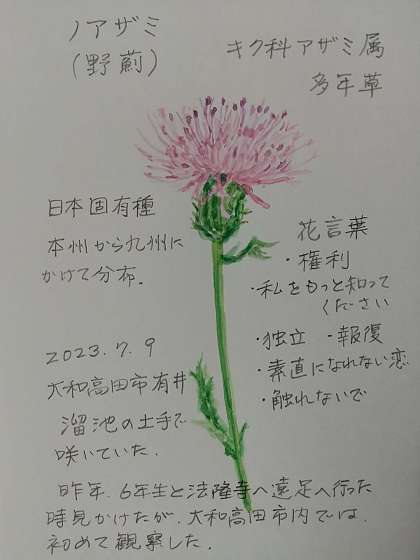 ノアザミ
(野薊)
キク科アザミ属
多年草
日本固有種
本州から九州に
かけて分布。
花言葉
・権利
・私をもっと知って
ください
・独立 ・報復
・素直になれない恋
・触れないで
2023.7.9
大和高田市有井
溜池の土手で
咲いていた。
昨年、6年生と法隆寺へ遠足へ行った
時見かけたが、大和高田市内では、
初めて観察した。